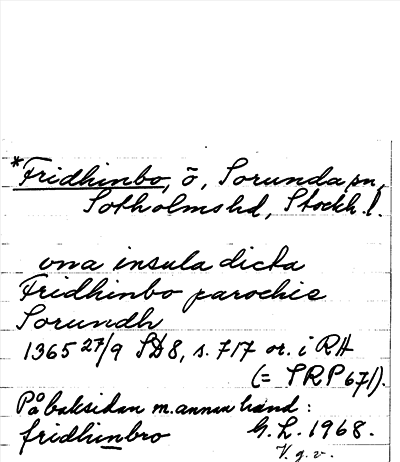 *Fridhinbo, ö, Sorunda sn,
Sotholms hd, Stockh. l.
ona insula dicta
Fridhinbo parochie
Sorundh
1365 27/9 SD8, s. 717 or. i RA
(= SRP 671).
På baksidan m. annan hand:
fridhinbro G. L. 1968.
V. g. v.